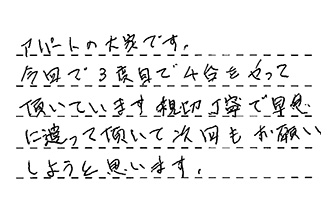 アパートの大家です。
今回で3度目で4台をやって
頂いています 親切丁寧で早急
に造って頂いて次回もお願い
しようと思います。